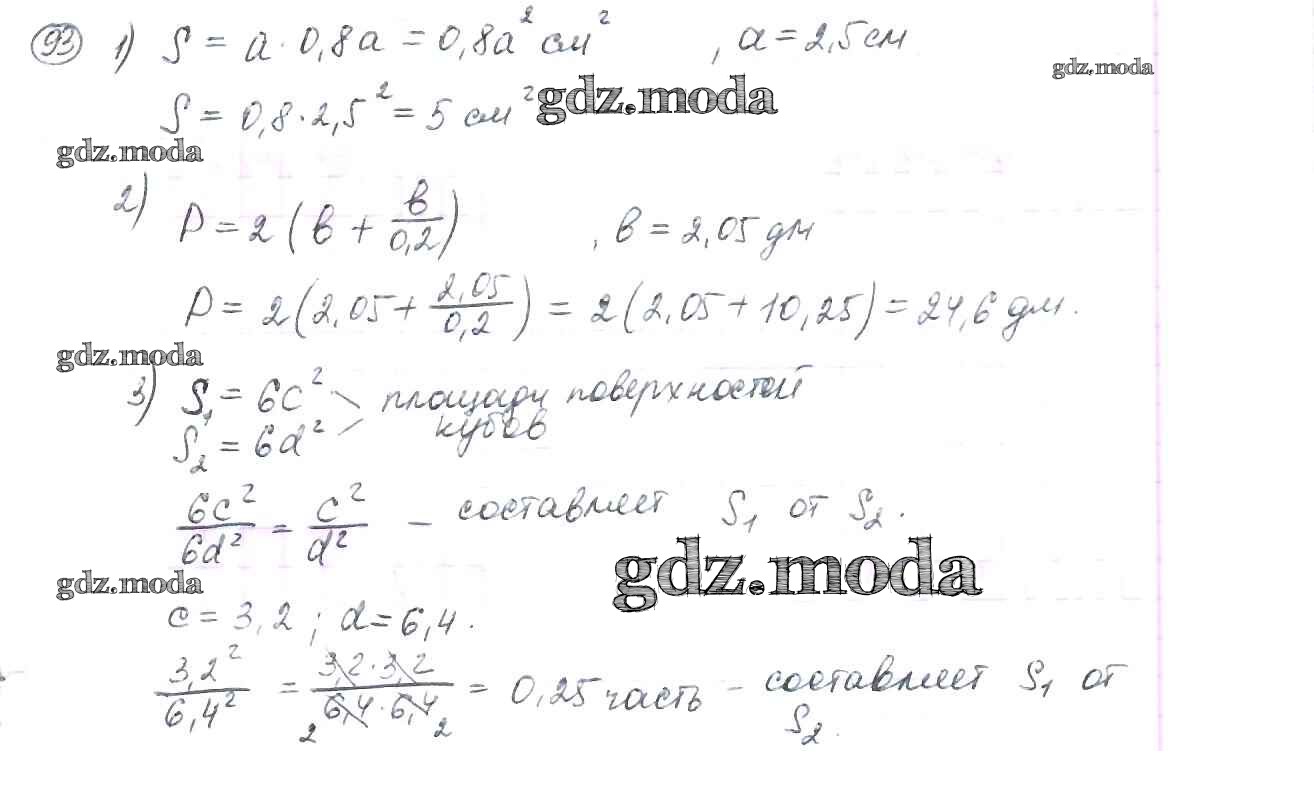 93 1) S = a · 0,8a = 0,8a² см² , a = 2,5 см
gdz.moda
S = 0,8 · 2,5² = 5 см² gdz.moda
gdz.moda
2) P = 2 (в + в/0,2) , в = 2,05 дм
P = 2(2,05 + 2,05/0,2) = 2(2,05 + 10,25) = 24,6 дм.
gdz.moda
3) S₁ = 6c² площади поверхностей
S₂ = 6d² кубов
6c²/6d² = c²/d² – составляет S₁ от S₂.
gdz.moda
gdz.moda
c = 3,2 ; d = 6,4.
3,2²/6,4² = 3,2 · 3,2/6,4 · 6,4 = 0,25 часть – составляет S₁ от
2 2
S₂.